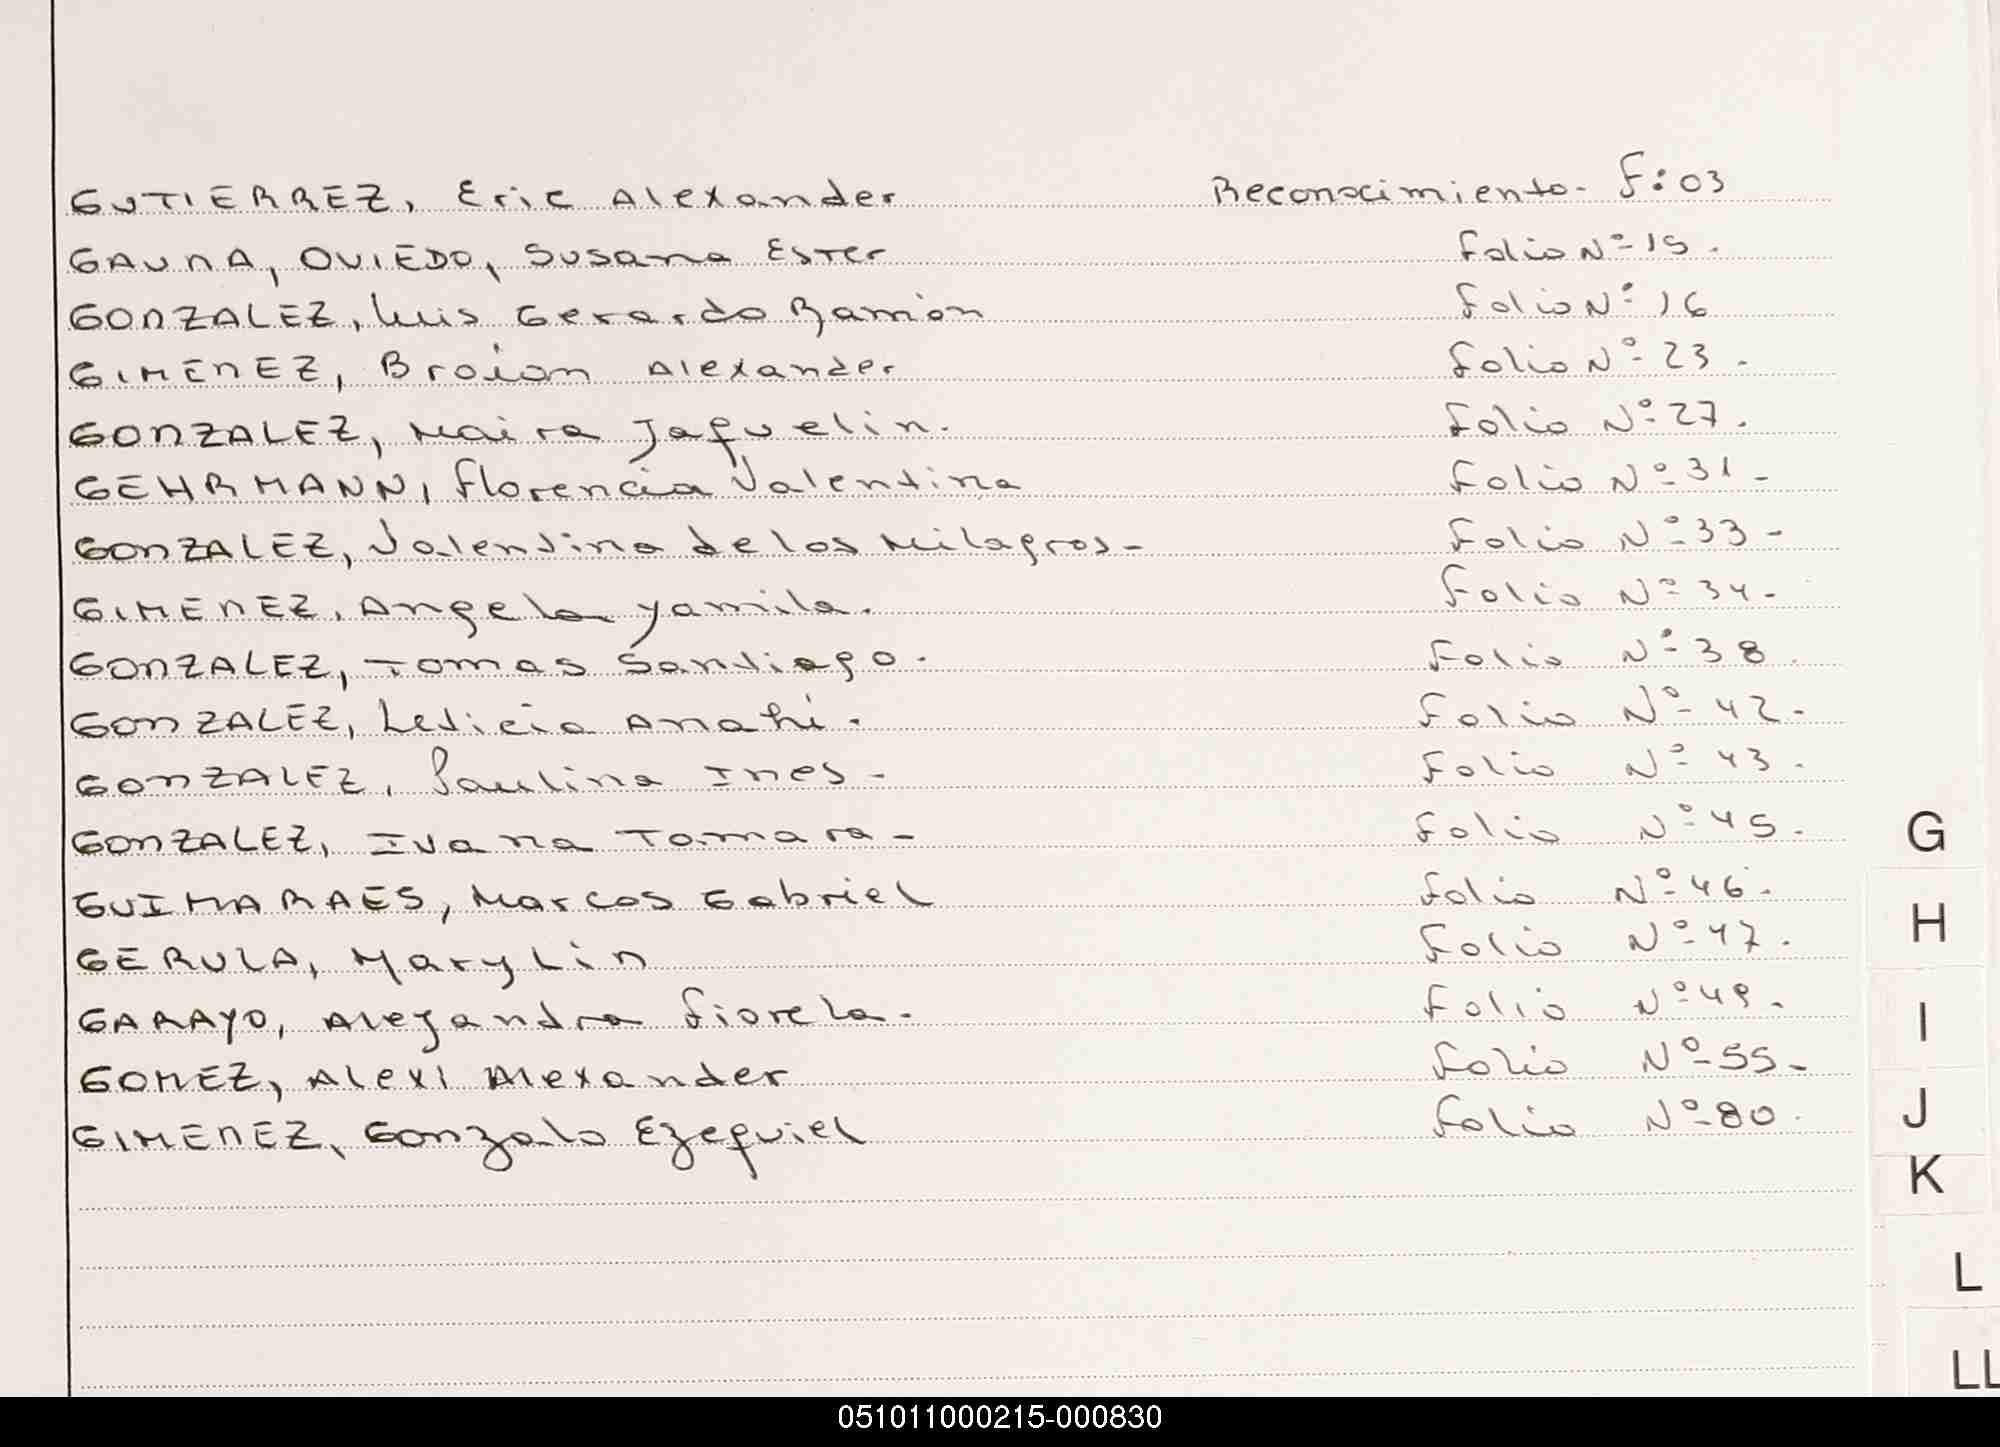 GUTIERREZ, Eric Alexander Reconocimiento- F:03
GAUNA, OVIEDO, Susana Ester Folio Nº-15.
GONZALEZ, Luis Gerardo Ramón Folio Nº- 16
GIMENEZ, Braian Alexander Folio Nº- 23.
GONZALEZ, Maira Jaquelin. Folio Nº-27.
GEHRMANN, Florencia Valentina Folio Nº-31-
GONZALEZ, Valentina de los Milagros- Folio Nº-33-
GIMENEZ, Angela Yamila. Folio Nº-34-
GONZALEZ, Tomas Santiago. Folio Nº-38.
GONZALEZ, Leticia Anahi. Folio Nº-42-
GONZALEZ, Paulina Ines- Folio Nº-43.
GONZALEZ, Ivana Tamara- Folio Nº-45-
GUIMARAES, Marcos Gabriel Folio Nº-46-
GERULA, Marylin Folio Nº-47.
GARAYO, Alejandra Fiorela. Folio Nº-49.
GOMEZ, Alexi Alexander Folio Nº-55-
GIMENEZ, Gonzalo Ezequiel Folio Nº-80.
G
H
I
J
K
L
LL
051011000215-000830